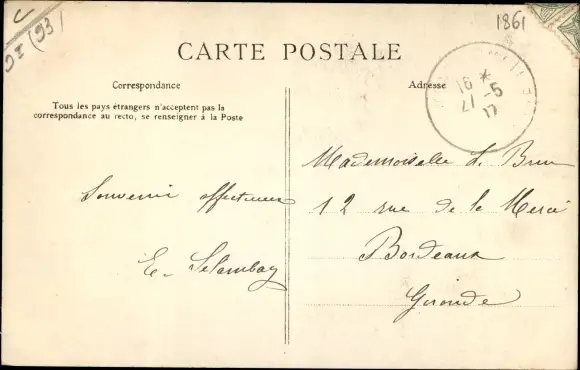 1861
CARTE POSTALE
Correspondance
Adresse
Tous les pays étrangers n'acceptent pas la
correspondance au recto, se renseigner à la Poste
16 *
21 -5
17
Mademoiselle L. Brun
12 rue de la Merci
Bordeaux
Gironde
Souvenir affectueux
E.
(93)